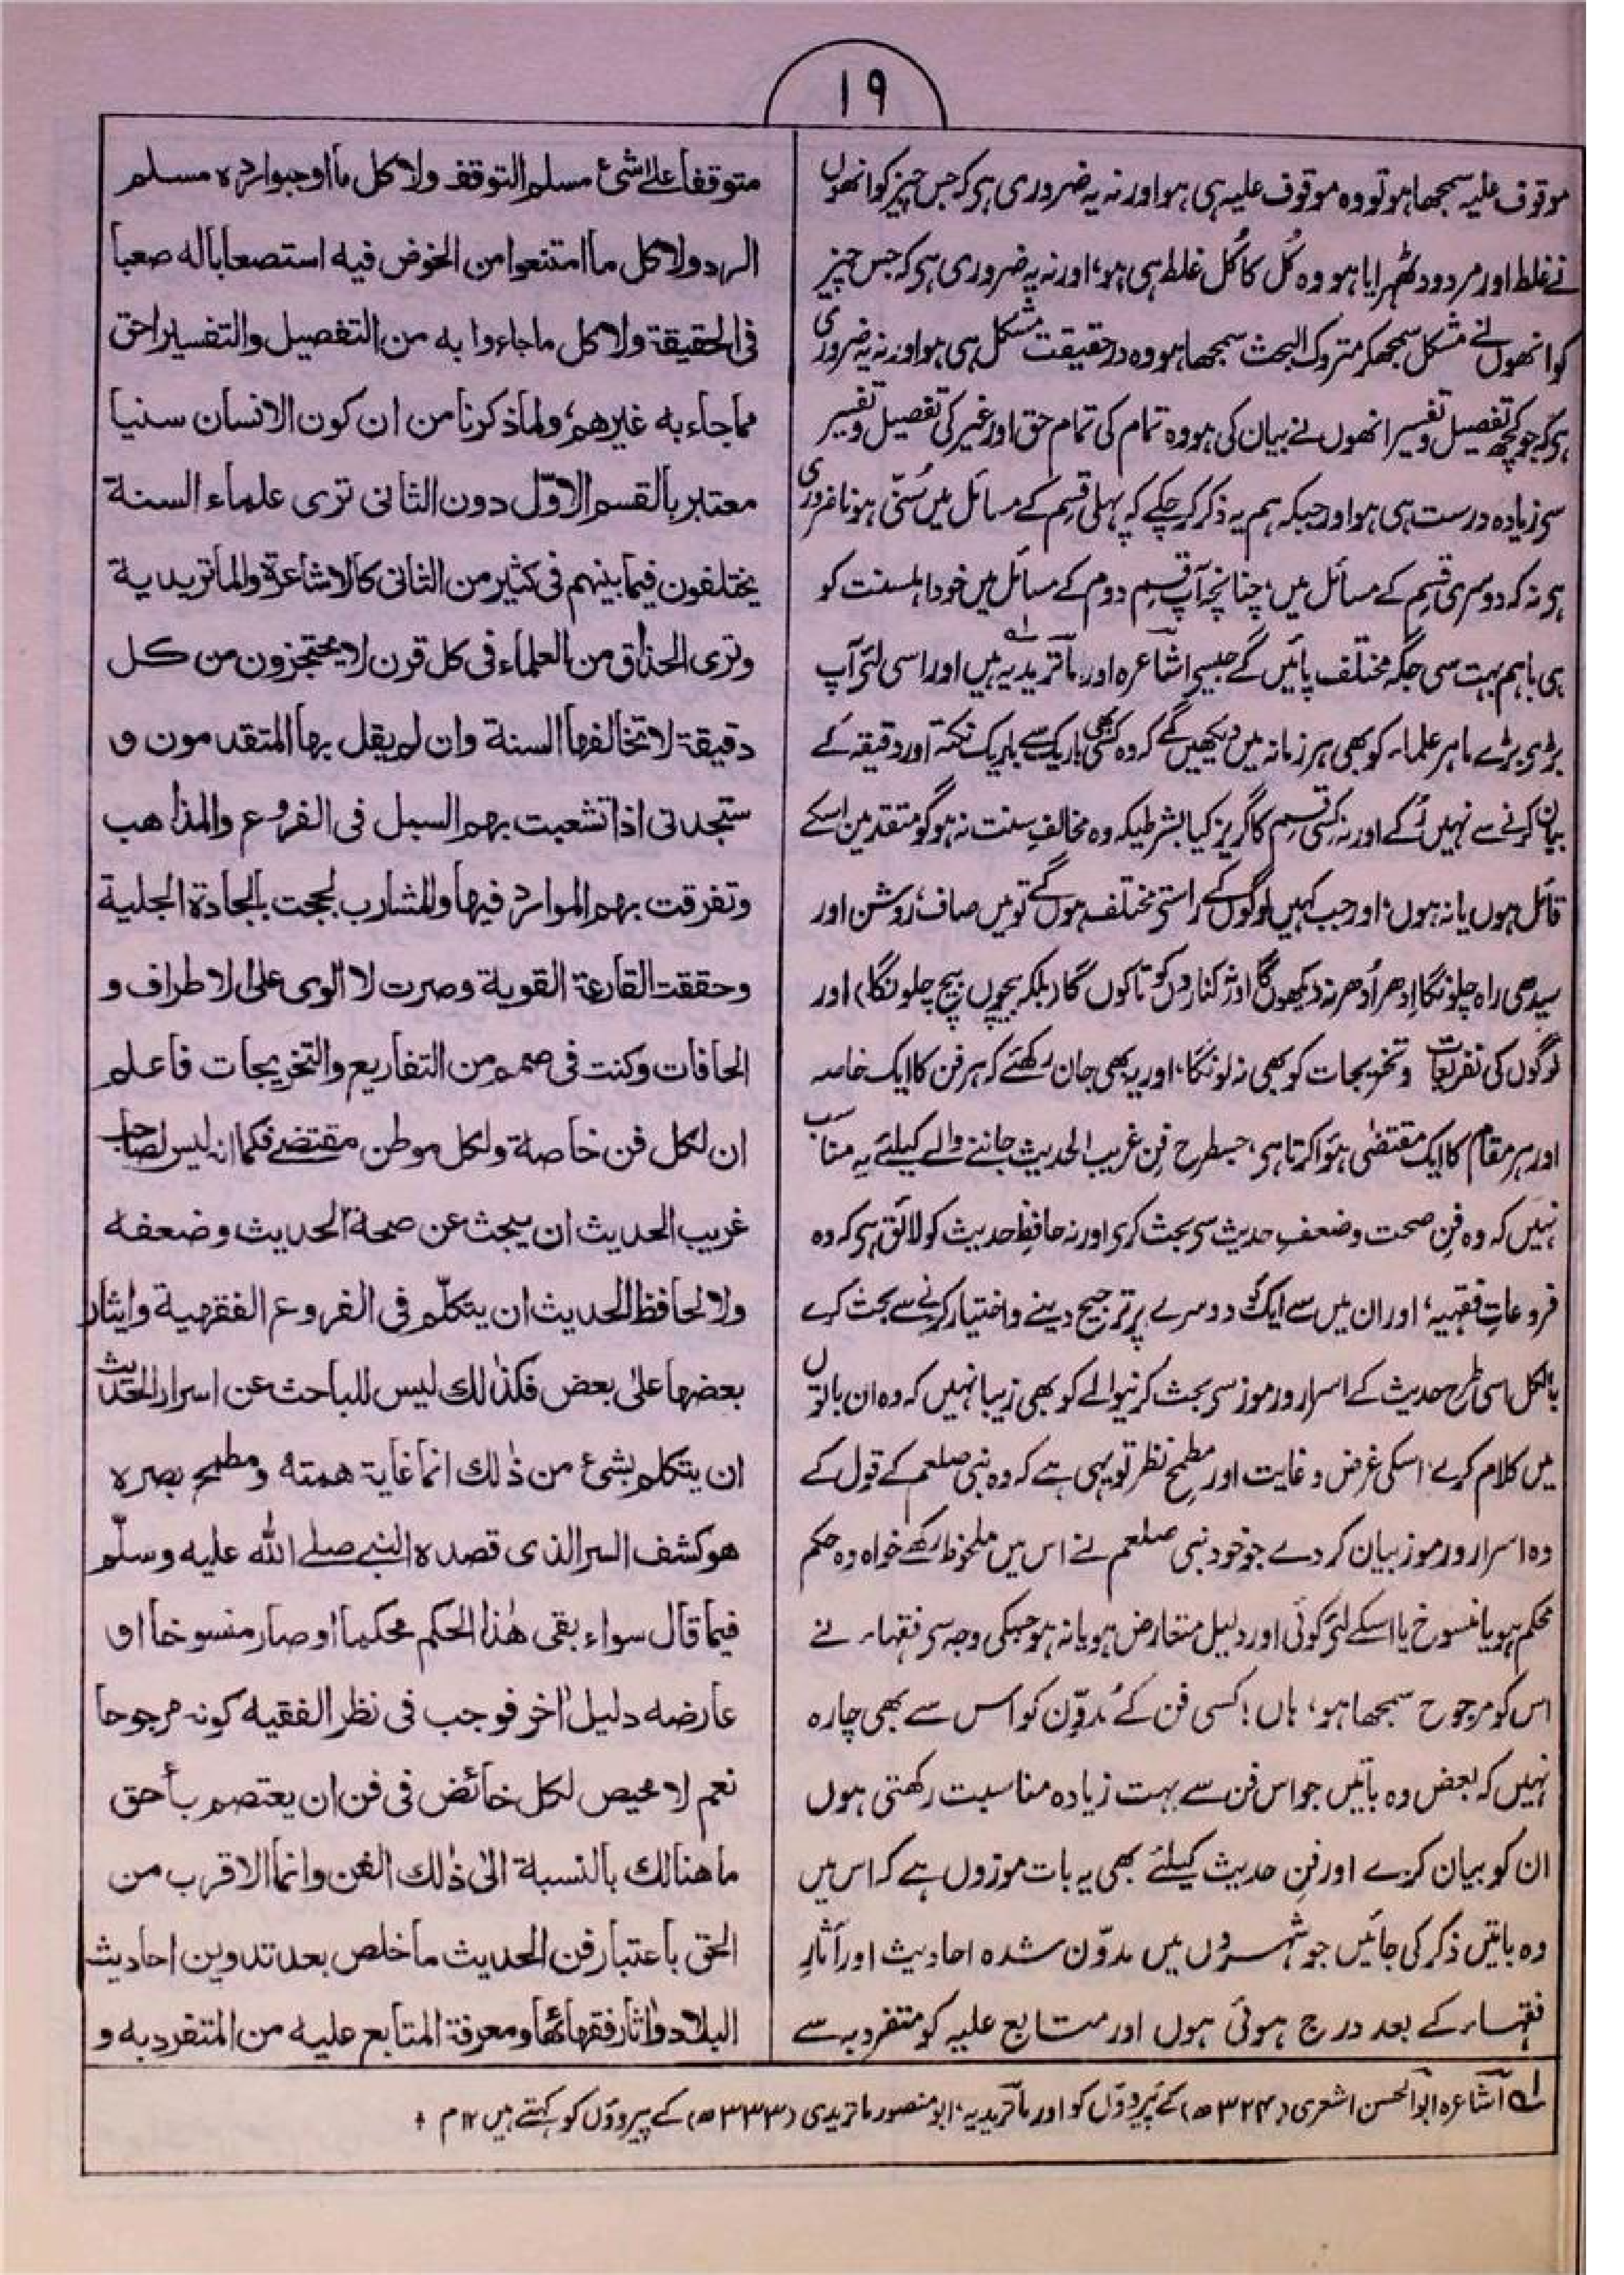 ۱۹
موقوف علیہ سمجھا ہو تو وہ موقوف علیہ ہی ہو اور نہ یہ ضروری ہی کہ جس چیز کو انھوں
نے غلط اور مردود ٹھہرایا ہو وہ کُل کا کُل غلط ہی ہو، اور نہ یہ ضروری ہی کہ جس چیز
کو انھوں نے مشکل سمجھکر متروک البحث سمجھا ہو وہ درحقیقت مشکل ہی ہو اور نہ یہ ضروری
ہی کہ جو کچھ تفصیل و تفسیر انھوں نے بیان کی ہو وہ تمام کی تمام حق اور غیر کی تفصیل و تفسیر
سی زیادہ درست ہی ہو اور جبکہ ہم یہ ذکر کر چکے کہ پہلی قسم کے مسائل میں سُنّی ہونا ضروری
ہی نہ کہ دوسری قسم کے مسائل میں، چنانچہ آپ قسم دوم کے مسائل میں خود اہلسنت کو
ہی باہم بہت سی جگہ مختلف پائیں گے جیسی اشاعرہ اور ماتریدیہ ہیں اور اسی لئی آپ
بڑی بڑے ماہر علماء کو بھی ہر زمانہ میں دیکھیں گے کہ وہ کسی باریک سے باریک نکتہ اور دقیقہ کے
بیان کرنے سے نہیں رُکے اور نہ کسی قسم کا گریز کیا بشرطیکہ وہ مخالفِ سنت نہ ہو گو متقدمین اسکے
قائل ہوں یا نہ ہوں، اور جب کہیں لوگوں کے راستی مختلف ہوں گے تو میں صاف، روشن اور
سیدھی راہ چلونگا اِدھر اُدھر نہ دیکھوں گا اور نہ کناروں کو تاکوں گا (بلکہ بیچوں بیچ چلونگا) اور
لوگوں کی تفریعات و تخریجات کو بھی نہ لونگا، اور یہ بھی جان رکھئے کہ ہر فن کا ایک خاصہ
اور ہر مقام کا ایک مقتضٰی ہؤا کرتا ہی، جسطرح فنِ غریب الحدیث جاننے والے کیلئے یہ مناسب
نہیں کہ وہ فنِ صحت و ضعفِ حدیث سی بحث کری اور نہ حافظِ حدیث کو لائق ہی کہ وہ
فروعاتِ فقہیہ، اور ان میں سے ایک کو دوسرے پر ترجیح دینے و اختیار کرنے سے بحث کرے
بالکل اسی طرح حدیث کے اسرار و رموز سی بحث کرنیوالے کو بھی زیبا نہیں کہ وہ ان باتوں
میں کلام کرے، اسکی غرض و غایت اور مطمحِ نظر تو یہی ہے کہ وہ نبی صلعم کے قول کے
وہ اسرار و رموز بیان کر دے جو خود نبی صلعم نے اس میں ملحوظ رکھے خواہ وہ حکم
محکم ہو یا منسوخ یا اسکے لئی کوئی اور دلیل متعارض ہو یا نہ ہو جسکی وجہ سی فقہاء نے
اس کو مرجوح سمجھا ہو، ہاں! کسی فن کے مُدوِّن کو اس سے بھی چارہ
نہیں کہ بعض وہ باتیں جو اس فن سے بہت زیادہ مناسبت رکھتی ہوں
ان کو بیان کرے اور فنِ حدیث کیلئے بھی یہ بات موزوں ہے کہ اس میں
وہ باتیں ذکر کی جائیں جو شہروں میں مدوّن شدہ احادیث اور آثارِ
فقہاء کے بعد درج ہوئی ہوں اور متابع علیہ کو متفرد بہ سے
متوقفا علی شئ مسلم التوقف ولا کل ما اوجبوا ردہ مسلم
الرد ولا کل ما امتنعوا من الخوض فیہ استصعابا لہ صعبا
فی الحقیقۃ ولا کل ما جاءوا بہ من التفصیل والتفسیر احق
مما جاء بہ غیرھم، ولما ذکرنا من ان کون الانسان سنیا
معتبر بالقسم الاوّل دون الثانی تری علماء السنۃ
یختلفون فیما بینہم فی کثیر من الثانی کالاشاعرۃ والماتریدیۃ
وتری الحذاق من العلماء فی کل قرن لا یحتجزون من کل
دقیقۃ لا تخالفھا السنۃ وان لم یقل بھا المتقدمون و
ستجدنی اذا تشعبت بھم السبل فی الفروع والمذاھب
وتفرقت بھم الموارد فیھا والمشارب لججت بالجادۃ الجلیۃ
وحققت القارعۃ القویۃ وصرت لا الوی علی الاطراف و
الحافات وکنت فی صمم من التفاریع والتخریجات فاعلم
ان لکل فن خاصۃ ولکل موطن مقتضے فکما انہ لیس لصاحب
غریب الحدیث ان یبحث عن صحۃ الحدیث وضعفہ
ولا لحافظ الحدیث ان یتکلّم فی الفروع الفقہیۃ وایثار
بعضھا علیٰ بعض فکذٰلک لیس للباحث عن اسرار الحدیث
ان یتکلم بشئ من ذٰلک انما غایۃ ھمتہ ومطمح بصرہ
ھو کشف السر الذی قصدہ النبی صلے اللّٰہ علیہ وسلّم
فیما قال سواء بقی ھٰذا الحکم محکما او صار منسوخا او
عارضہ دلیل اٰخر فوجب فی نظر الفقیہ کونہ مرجوحا
نعم لا محیص لکل خائض فی فن ان یعتصم باحق
ما ھنالک بالنسبۃ الیٰ ذٰلک الفن وانما الاقرب من
الحق باعتبار فن الحدیث ما خلص بعد تدوین احادیث
البلاد واٰثار فقھائھا ومعرفۃ المتابع علیہ من المتفرد بہ و
لہ اشاعرہ ابو الحسن اشعری (۳۲۴ھ) کے پیروؤں کو اور ماتریدیہ، ابو منصور ماتریدی (۳۳۳ھ) کے پیروؤں کو کہتے ہیں ۱۲م